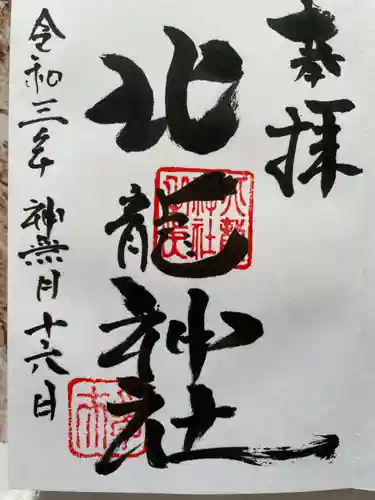 奉拝
北龍神社
令和三年 神無月 十六日